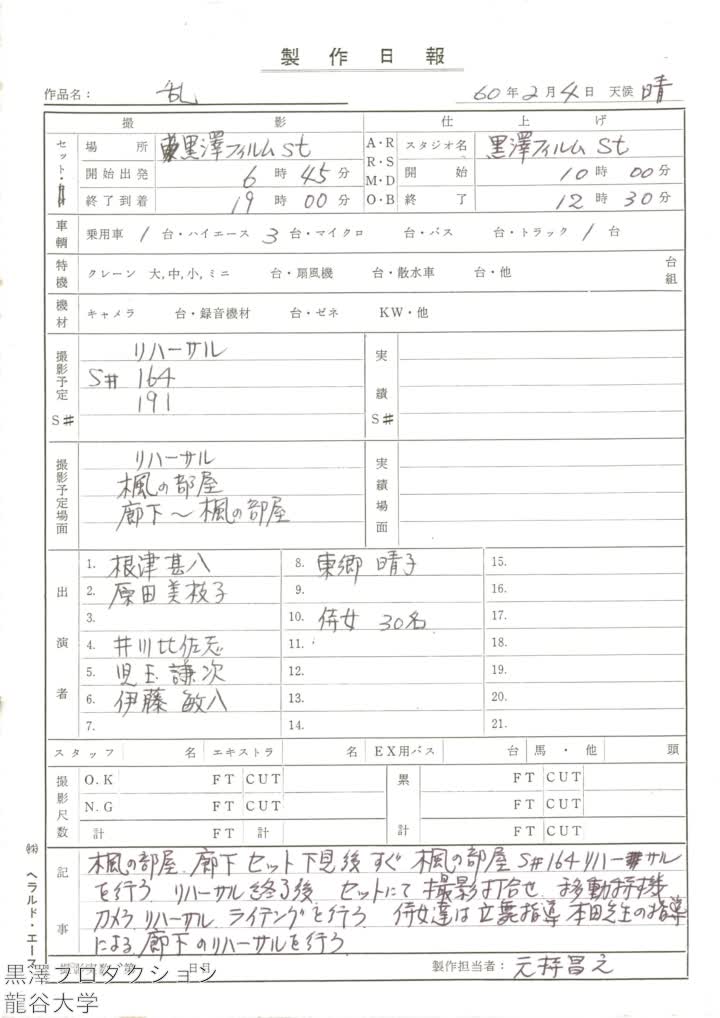 製作日報
作品名： 乱 60年2月4日 天候 晴
撮影 仕上げ
セット・ 場所 黒澤フィルムSt A・R スタジオ名 黒澤フィルムSt
開始出発 6時45分 R・S M・D 開始 10時00分
終了到着 19時00分 O・B 終了 12時30分
車輌 乗用車 1台・ハイエース 3台・マイクロ 台・バス 台・トラック 1台
特機 クレーン 大,中,小,ミニ 台・扇風機 台・散水車 台・他 台組
機材 キャメラ 台・録音機材 台・ゼネ KW・他
撮影予定S# リハーサル 実績S#
S# 164
191
撮影予定場面 リハーサル 実績場面
楓の部屋
廊下〜楓の部屋
出演者
1. 根津甚八 8. 東郷晴子 15.
2. 原田美枝子 9. 16.
3. 10. 侍女 30名 17.
4. 井川比佐志 11. 18.
5. 児玉謙次 12. 19.
6. 伊藤敏八 13. 20.
7. 14. 21.
スタッフ 名 エキストラ 名 EX用バス 台 馬・他 頭
撮影尺数 O.K FT CUT 累計 FT CUT
N.G FT CUT FT CUT
計 FT 計 FT CUT
記事
楓の部屋、廊下 セット下見後すぐ 楓の部屋 S#164 リハーサル
を行う リハーサル終了後、セットにて撮影打合せ 移動特機
カメラ リハーサル ライテングを行う 侍女達は立舞指導 本田先生の指導
による廊下のリハーサルを行う
撮影実数 第 日目 製作担当者： 元持昌之
㈱ヘラルド・エース
黒澤プロダクション
龍谷大学